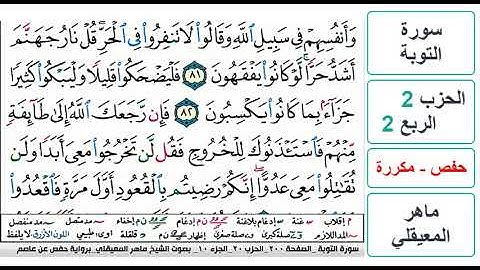 وَأَنفُسِهِمْ فِي سَبِيلِ ٱللَّهِ وَقَالُوا۟ لَا تَنفِرُوا۟ فِي ٱلْحَرِّ ۗ قُلْ نَارُ جَهَنَّمَ
أَشَدُّ حَرًّا ۚ لَّوْ كَانُوا۟ يَفْقَهُونَ ٨١ فَلْيَضْحَكُوا۟ قَلِيلًا وَلْيَبْكُوا۟ كَثِيرًا
جَزَآءًۢ بِمَا كَانُوا۟ يَكْسِبُونَ ٨٢ فَإِن رَّجَعَكَ ٱللَّهُ إِلَىٰ طَآئِفَةٍ
مِّنْهُمْ فَٱسْتَـْٔذَنُوكَ لِلْخُرُوجِ فَقُل لَّن تَخْرُجُوا۟ مَعِيَ أَبَدًا وَلَن
تُقَٰتِلُوا۟ مَعِيَ عَدُوًّا ۖ إِنَّكُمْ رَضِيتُم بِٱلْقُعُودِ أَوَّلَ مَرَّةٍ فَٱقْعُدُوا۟
سورة التوبة - الصفحة ٢٠٠ - الحزب ٢٠ - الجزء ١٠ - بصوت الشيخ ماهر المعيقلي - برواية حفص عن عاصم
سورة
التوبة
الحزب 2
الربع 2
حفص - مكررة
ماهر
المعيقلي